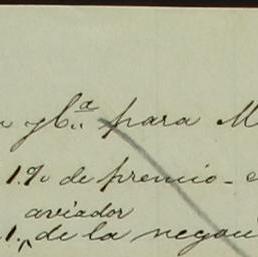 para M
1% de premio - c
aviador
1. de la negoci